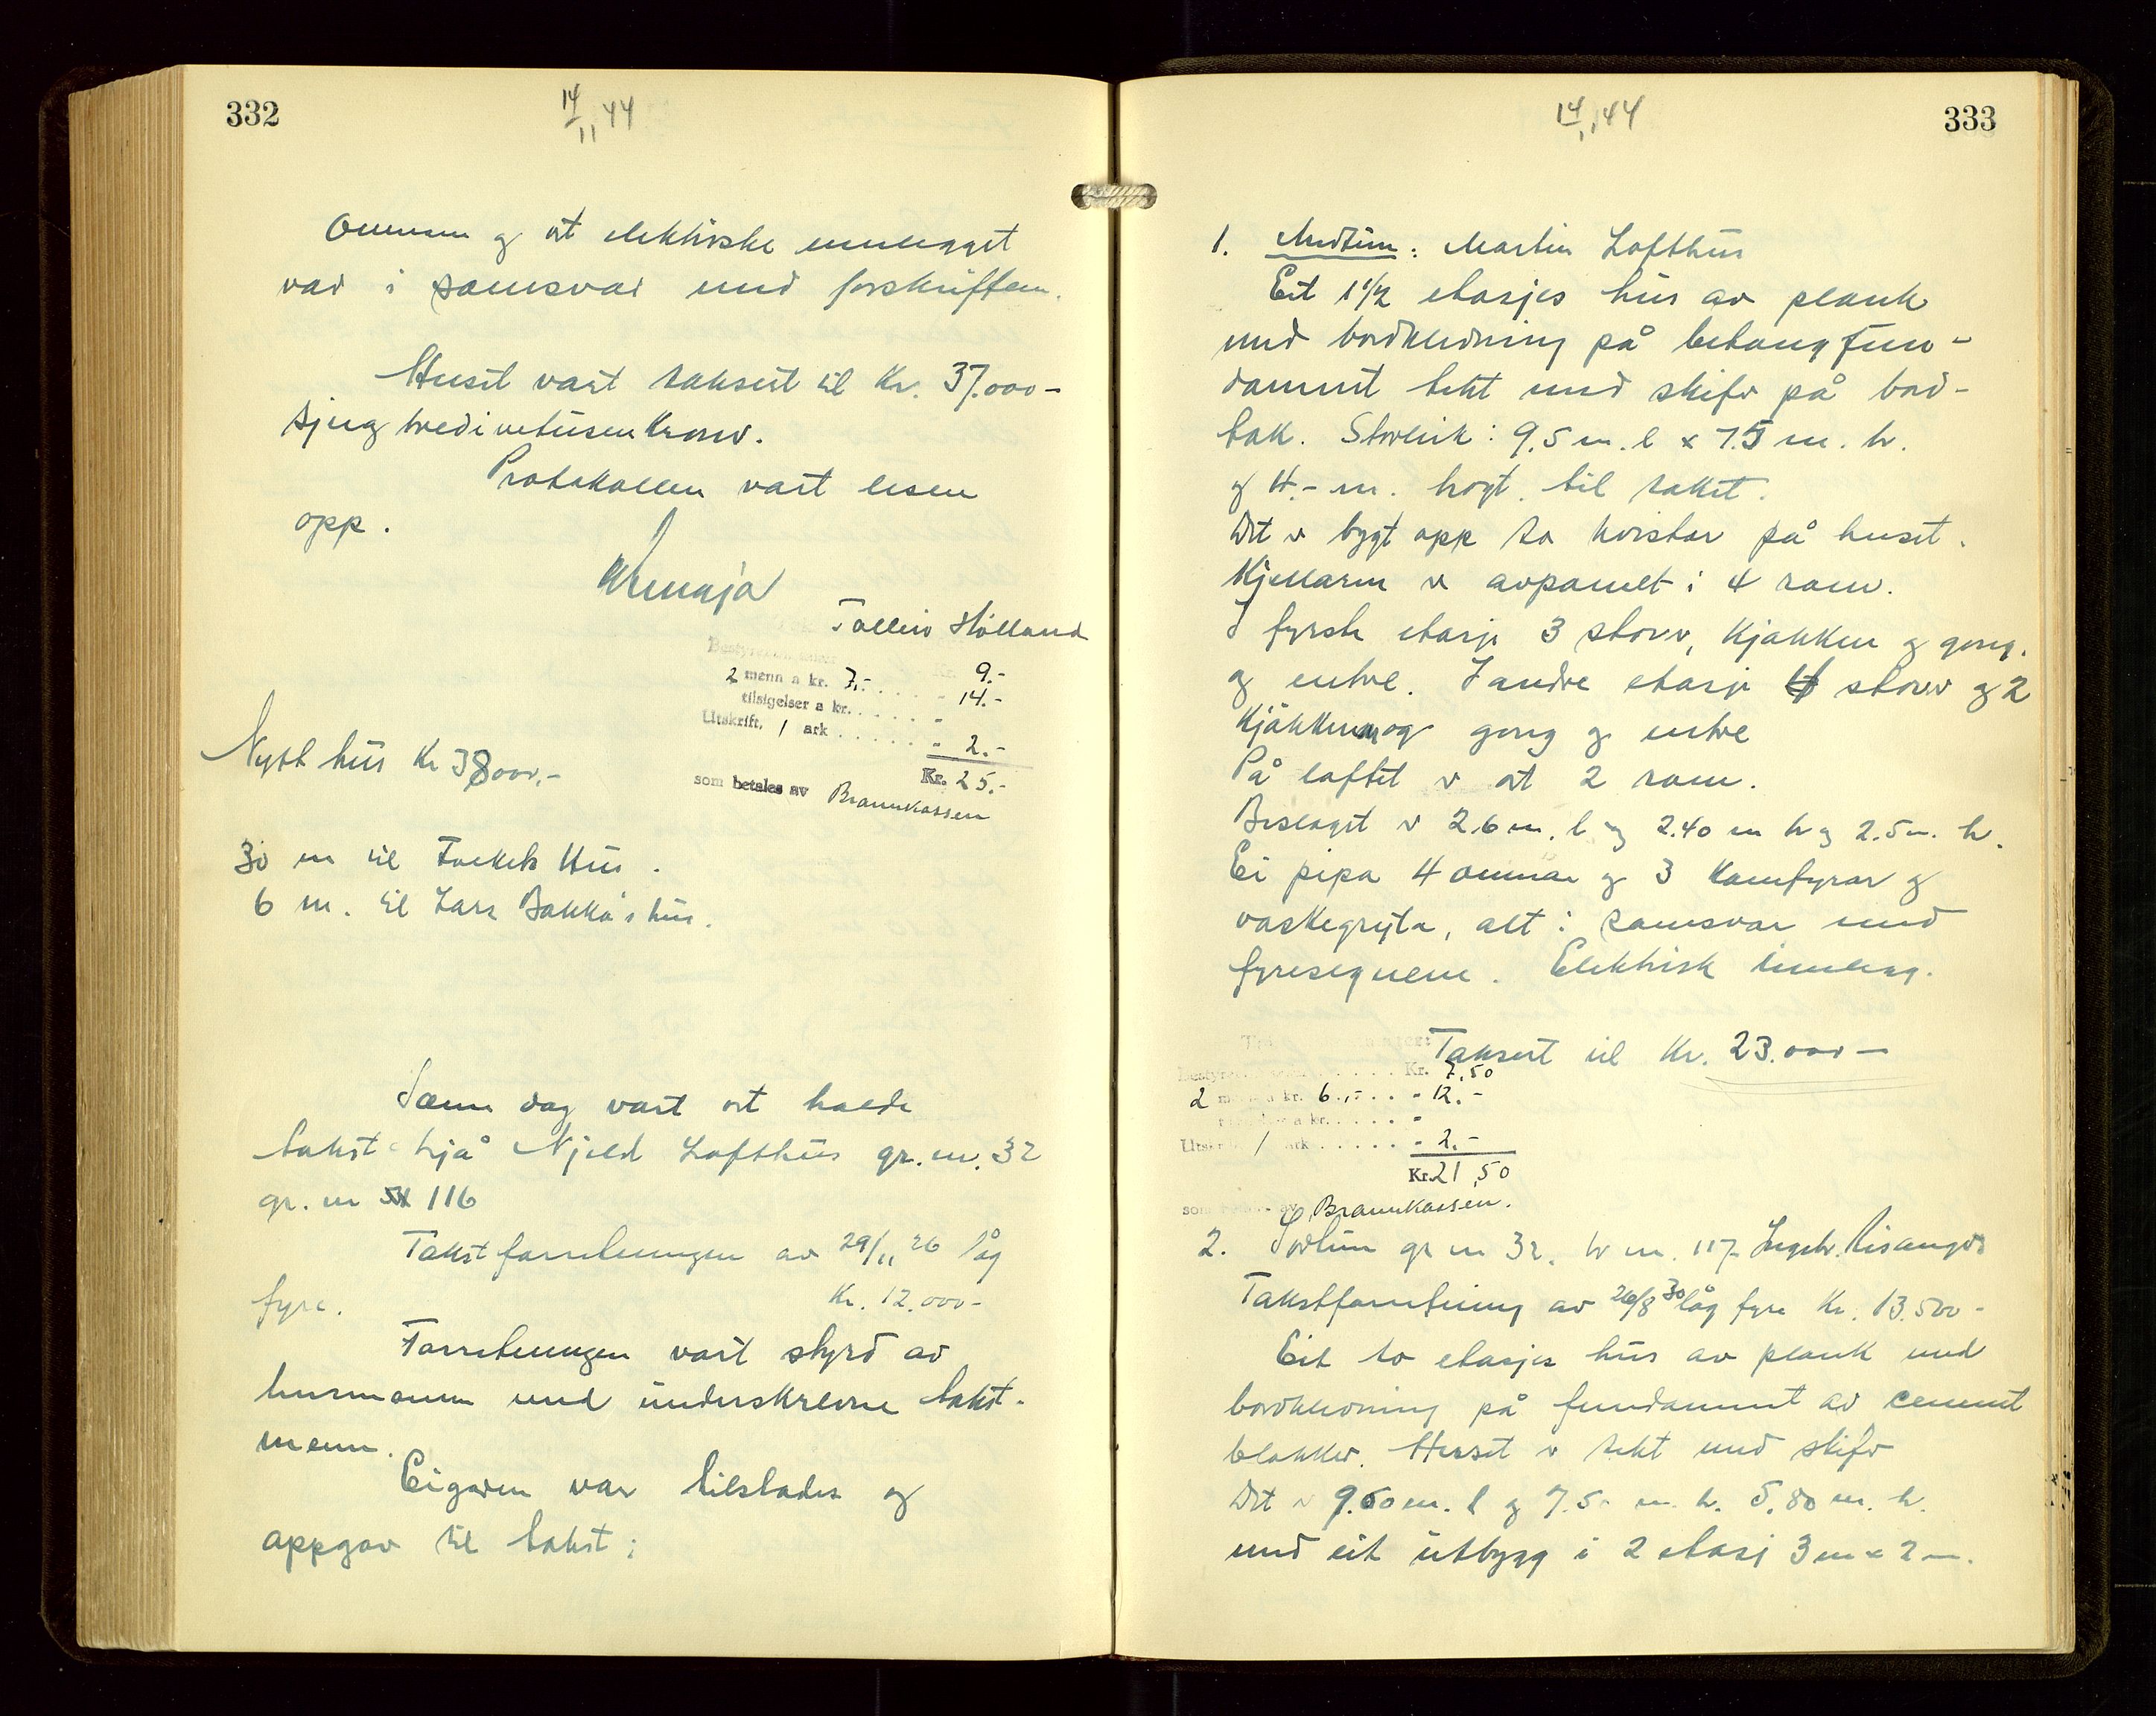 332
14/11 44
Omnen og det elektriske innlegget
var i samsvar med forskriften.
Huset vart taksert til Kr. 37.000-
sjug tredivetusen kroner.
Protokollen vart lesen
opp.
Tolleiv Hølland
Bestyrer
Kr. 9.-
2 menn a kr. 7,- - 14.-
tilsigelser a kr. -
Utskrift, 1 ark - 2.-
Kr. 25.-
som betales av Brannkassen
Nytt hus Kr 38000,-
30 m til hus.
6 m. til Lars Bakka's hus.
Same dag vart det halde
takst hjå Njeld Lofthus gr. nr. 32
gr. nr 116
Takstforretningen av 29/11 26 låg
fyre. Kr. 12.000-
Forretningen vart styrd av
lensmannen med underskrevne takst-
menn.
Eigaren var tilstades og
oppgav til takst:
333
14/11 44
1. : Martin Lofthus
Eit 1 1/2 etasjes hus av plank
med bordkledning på betongfun-
dament tekt med skifer på bord-
tak. Storleik: 9,5 m. l x 7.5 m. br.
og 4.- m. høgt til taket.
Det er bygt opp to kvistar på huset.
Kjellaren er avpanelt i 4 rom.
I fyrste etasje 3 stover, kjøkken og gong.
og entre. I andre etasje 4 stover og 2
kjøkken og gong og entre
På loftet er det 2 rom.
Bislaget er 2.6 m. l og 2.40 m br og 2.5 m. h.
Ei pipa 4 omnar og 3 komfyrar og
vaskegryta, alt i samsvar med
fyresegnene. Elektrisk innlegg.
Taksert til Kr. 23.000-
Bestyrer Kr. 7,50
2 menn a kr. 6,- - 12.-
a kr. -
Utskrift 1 ark - 2.-
Kr. 21,50
som betales av Brannkassen.
2. gr nr 32. br nr. 117 Ingebr. Lisanger
Takstforretning av 26/8 30 låg fyre Kr. 13.500-
Eit to etasjes hus av plank med
bordkledning på fundament av cement
blokker. Huset er tekt med skifer
Det er 9.60 m. l og 7.5 m. br. 5.80 m. h.
med eit utbygg i 2 etasj 3 m x 2 m.